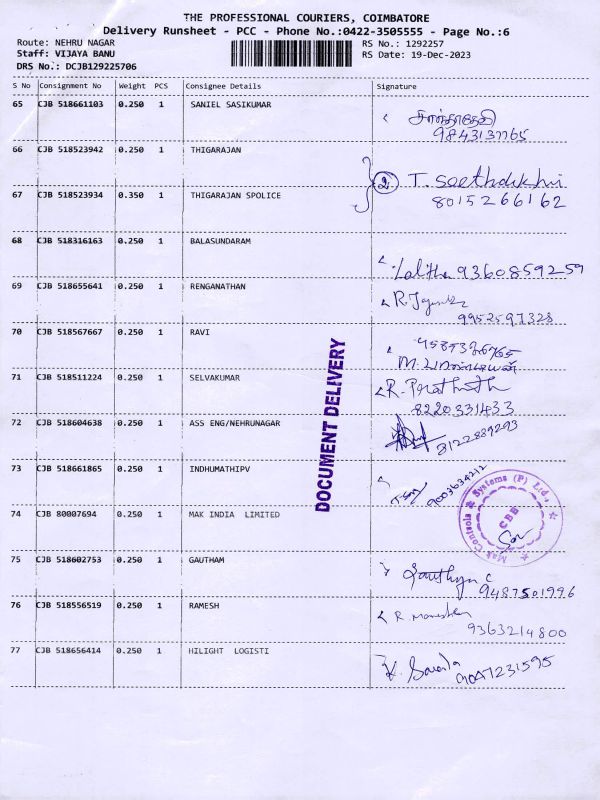 THE PROFESSIONAL COURIERS, COIMBATORE
Delivery Runsheet - PCC - Phone No.:0422-3505555 - Page No.:6
Route: NEHRU NAGAR
Staff: VIJAYA BANU
DRS No.: DCJB129225706
RS No.: 1292257
RS Date: 19-Dec-2023
S No Consignment No Weight PCS Consignee Details Signature
65 CJB 518661103 0.250 1 SANIEL SASIKUMAR
66 CJB 518523942 0.250 1 THIGARAJAN
67 CJB 518523934 0.350 1 THIGARAJAN SPOLICE
② T. Seethalakshmi
8015266162
68 CJB 518316163 0.250 1 BALASUNDARAM
Lalitha 9360859259
69 CJB 518655641 0.250 1 RENGANATHAN
9952597328
70 CJB 518567667 0.250 1 RAVI
71 CJB 518511224 0.250 1 SELVAKUMAR
8220331433
72 CJB 518604638 0.250 1 ASS ENG/NEHRUNAGAR
8122889293
73 CJB 518661865 0.250 1 INDHUMATHIPV
9003634212
74 CJB 80007694 0.250 1 MAK INDIA LIMITED
Mak Controls & Systems (P) Ltd.,
CBB
75 CJB 518602753 0.250 1 GAUTHAM
9487501996
76 CJB 518556519 0.250 1 RAMESH
9363214800
77 CJB 518656414 0.250 1 HILIGHT LOGISTI
9047231595
DOCUMENT DELIVERY